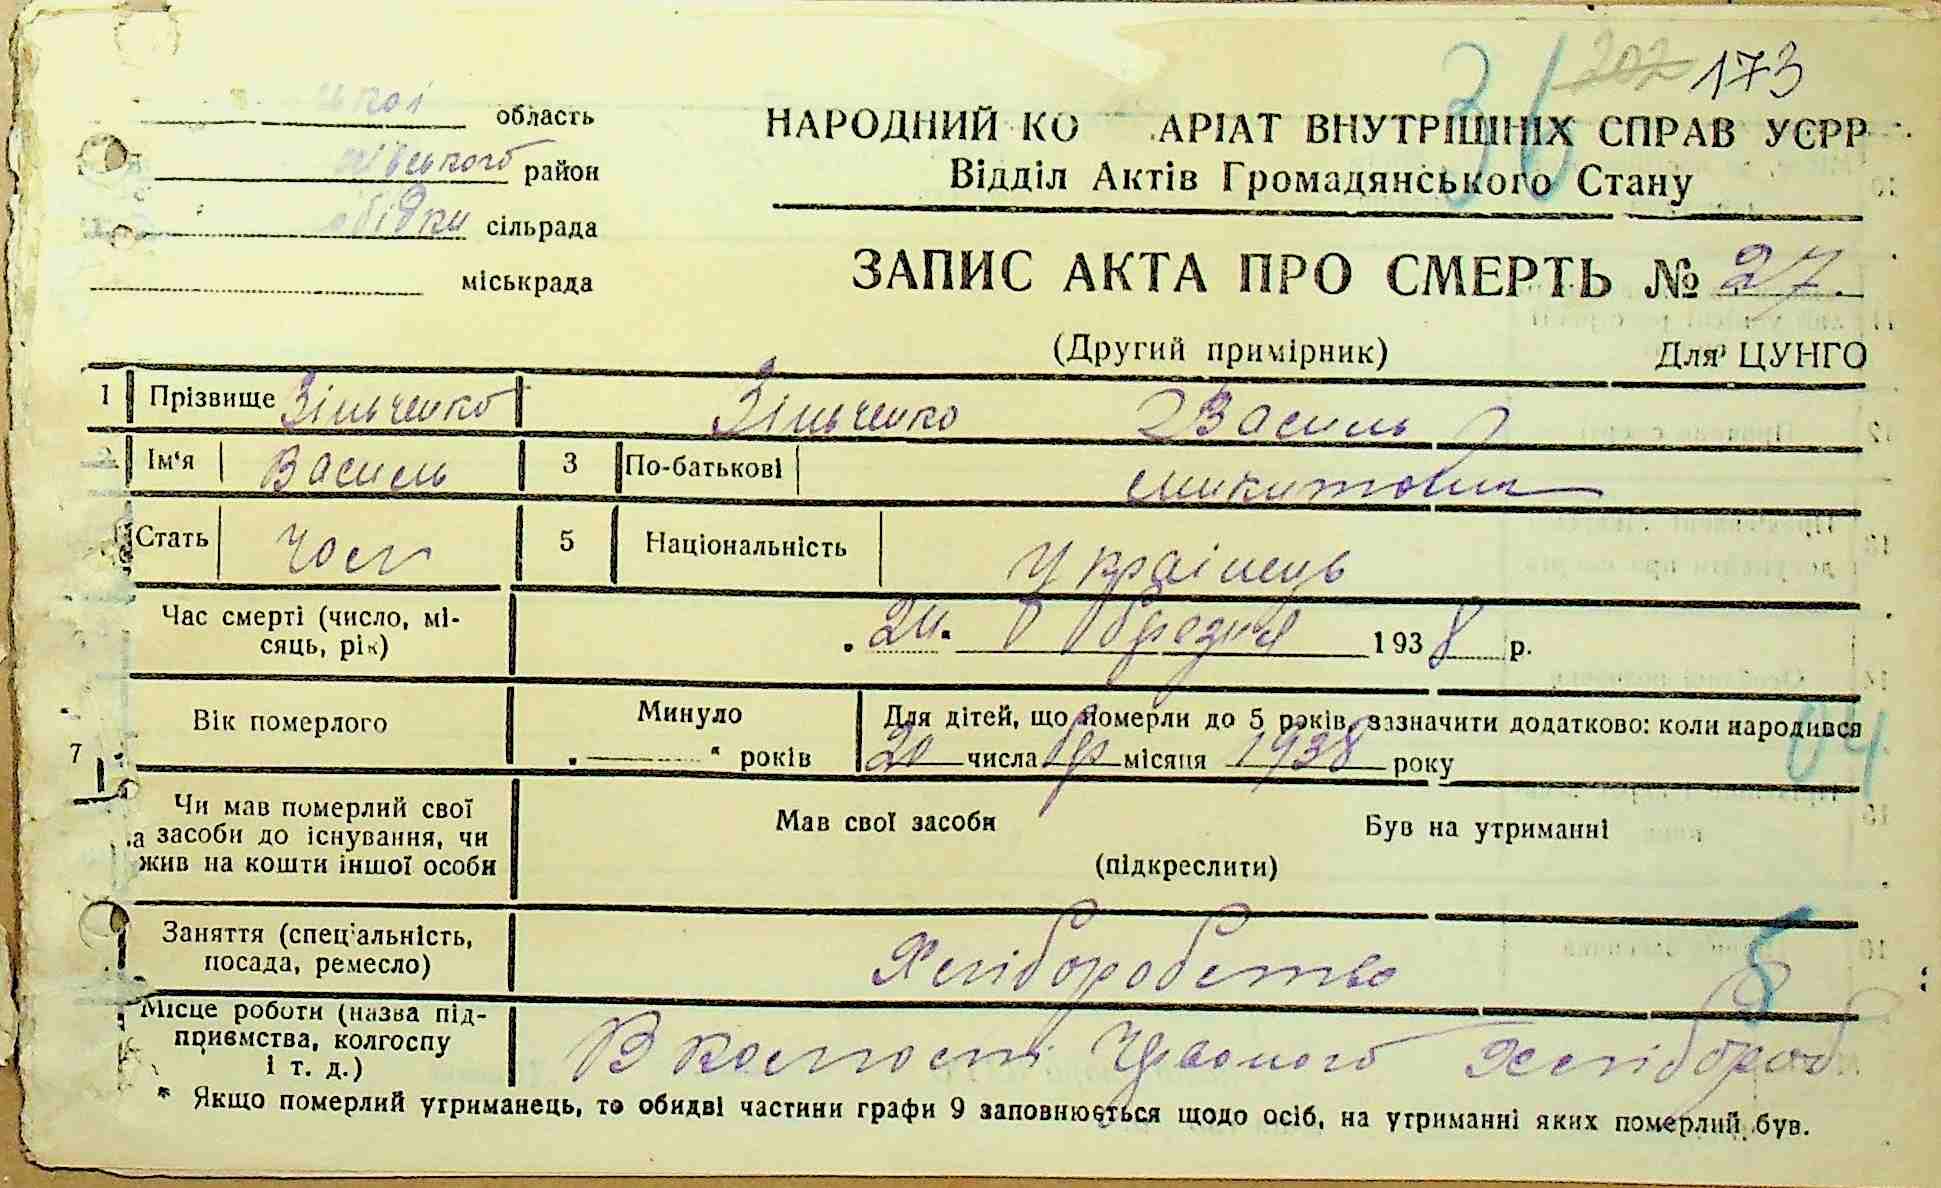 202 173
36
область
НАРОДНИЙ КО АРІАТ ВНУТРІШНІХ СПРАВ УСРР
район
Відділ Актів Громадянського Стану
сільрада
міськрада
ЗАПИС АКТА ПРО СМЕРТЬ № 27.
(Другий примірник) Для ЦУНГО
1 Прізвище Зінченко Зінченко Василь
Ім'я Василь 3 По-батькові Микитович
Стать Чол 5 Національність Українець
Час смерті (число, мі-
сяць, рік) 24. березня 1938 р.
7 Вік померлого Минуло Для дітей, що померли до 5 років, зазначити додатково: коли народився
років 20 числа бер місяця 1938 року
04
Чи мав померлий свої
засоби до існування, чи
жив на кошти іншої особи
Мав свої засоби Був на утриманні
(підкреслити)
Заняття (спеціальність,
посада, ремесло) Хліборобство
5
Місце роботи (назва під-
приємства, колгоспу
і т. д.) В колгоспі Червоного Хлібороб
* Якщо померлий утриманець, то обидві частини графи 9 заповнюється щодо осіб, на утриманні яких померлий був.